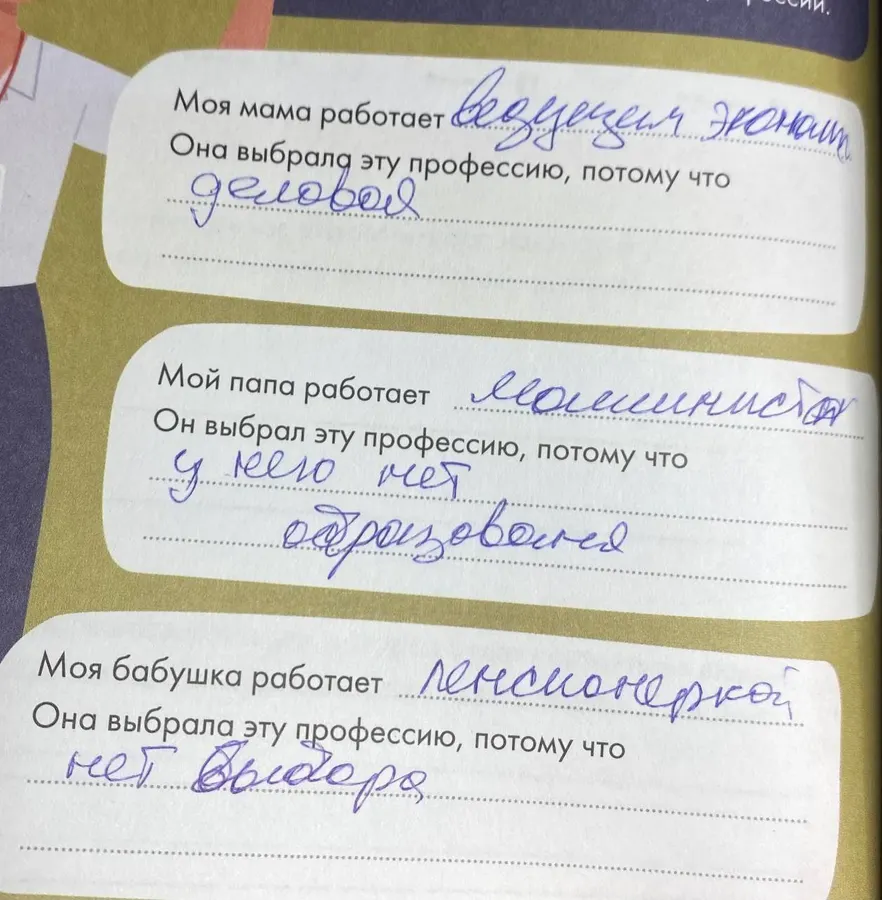 ессии.
Моя мама работает ведущим эконом.
Она выбрала эту профессию, потому что
деловая
Мой папа работает машинистом
Он выбрал эту профессию, потому что
у него нет
образования
Моя бабушка работает пенсионеркой
Она выбрала эту профессию, потому что
нет выбора